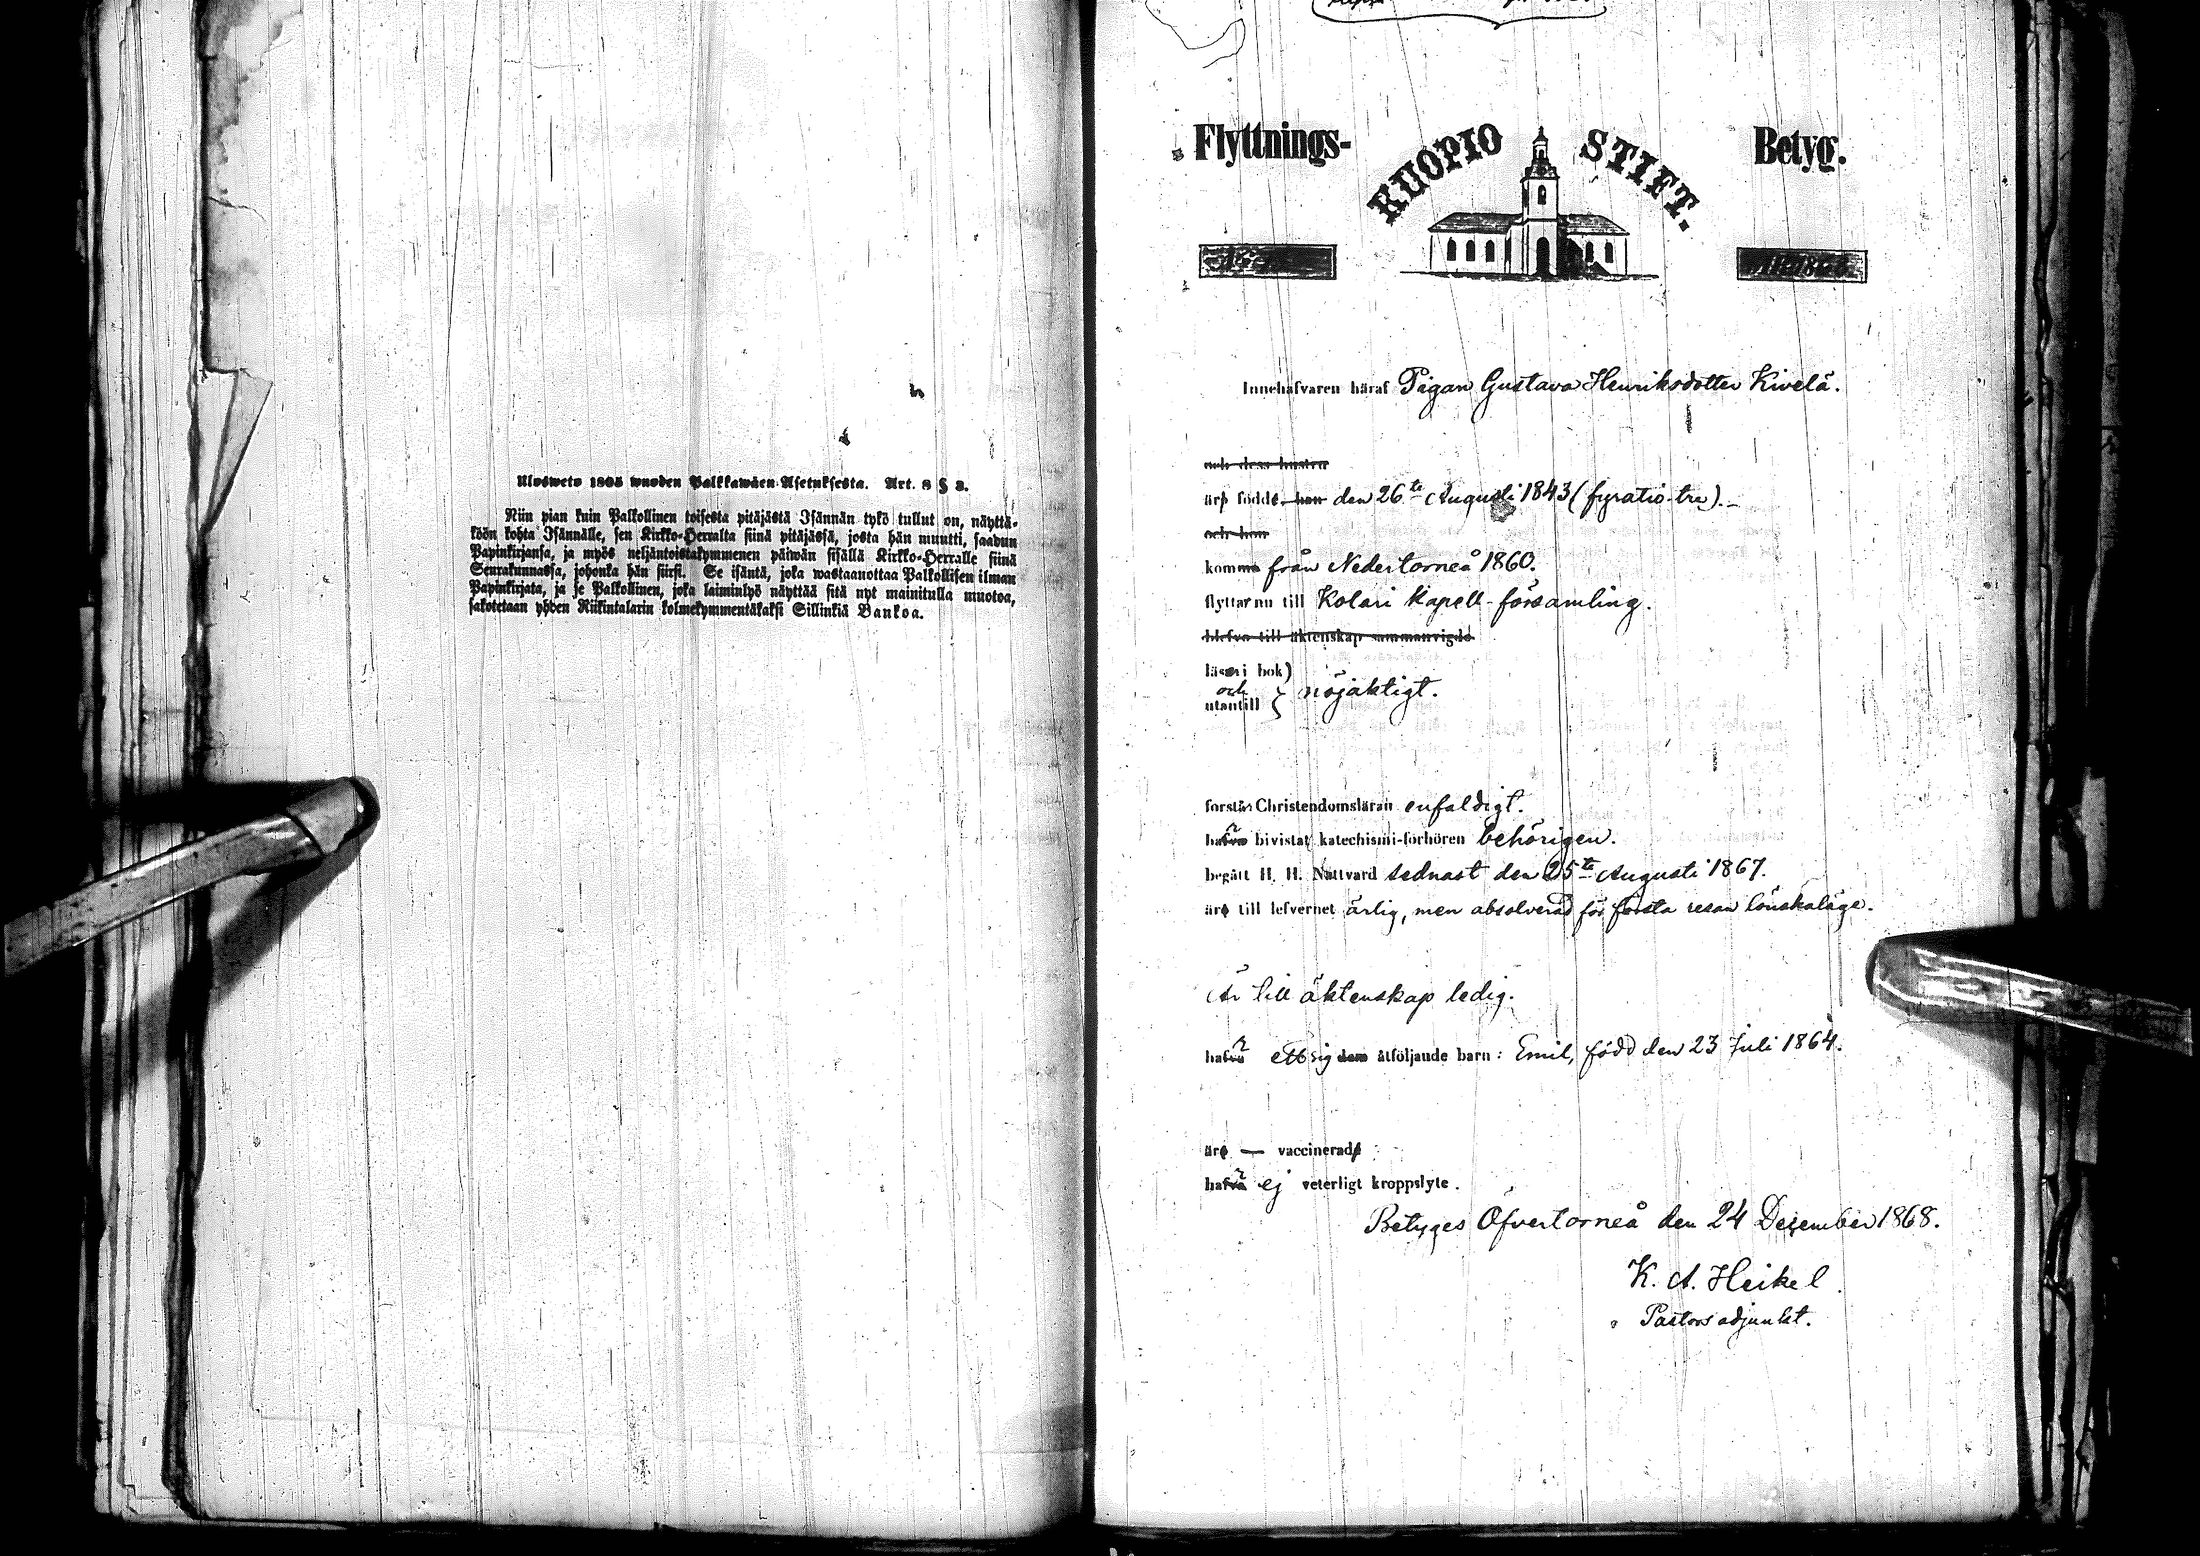 Ulosweto 1805 wuoden Palkkawäen Asetuksesta. Art. 8 § 3.
Niin pian kuin Palkollinen toisesta pitäjästä Isännän tykö tullut on, näyttä-
köön kohta Isännälle, sen Kirkko-Herralta siinä pitäjässä, josta hän muutti, saadun
Papinkirjansa, ja myös neljäntoistakymmenen päiwän sisällä Kirkko-Herralle siinä
Seurakunnassa, johonka hän siirsi. Se isäntä, joka wastaanottaa Palkollisen ilman
Papinkirjata, ja se Palkollinen, joka laiminlyö näyttää sitä nyt mainitulla muotoa,
sakotetaan yhden Riikintalarin kolmekymmentäkaksi Sillinkiä Bankoa.
Flyttnings- KUOPIO STIFT. Betyg.
Innehafvaren häraf Pigan Gustava Henriksdotter Kivelä.
och dess hustru
äro född, han den 26te Augusti 1843 (fyratio-tre).
och hon
komme från Nedertorneå 1860.
flyttar nu till Kolari kapell-församling.
blefvo till äktenskap sammanvigde
läser i bok
och } nöjaktigt.
utantill
förstår Christendomsläran enfaldigt.
har bivistat katechismi-förhören behörigen.
begått H. H. Nattvard sednast den 25te Augusti 1867.
är till lefvernet ärlig, men absolverad för första resan lönskaläge.
Är till äktenskap ledig.
har ett sig dem åtföljande barn: Emil, född den 23 Juli 1864.
är — vaccinerad
har ej veterligt kroppslyte.
Betyges Öfvertorneå den 24 December 1868.
K. A. Heikel.
Pastorsadjunkt.